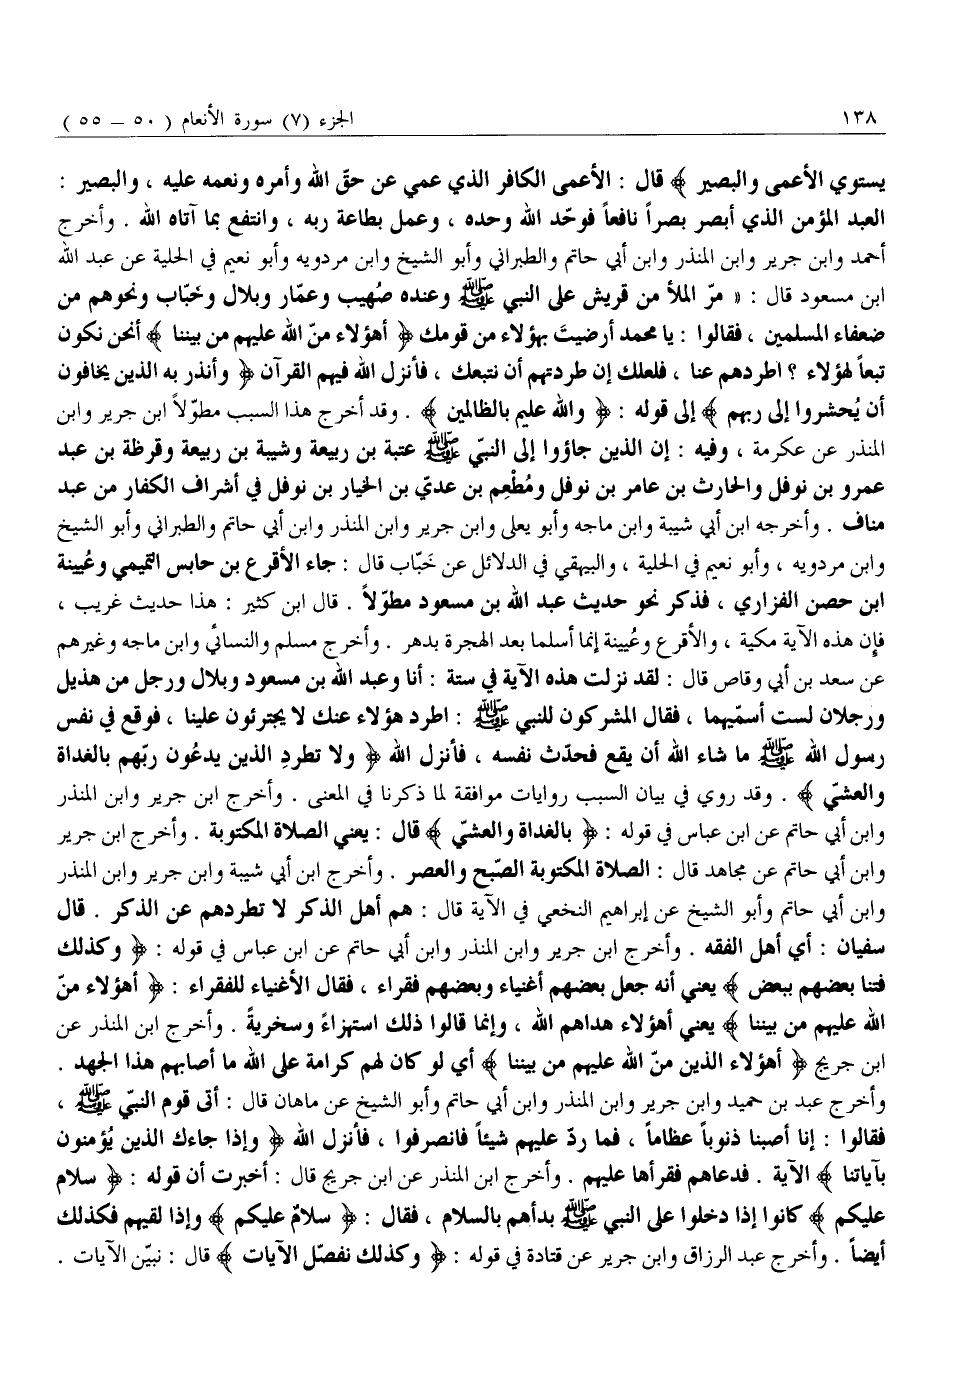 ١٣٨ الجزء (٧) سورة الأنعام ( ٥٠ – ٥٥ )
يستوي الأعمى والبصير ﴾ قال : الأعمى الكافر الذي عمي عن حقّ الله وأمره ونعمه عليه ، والبصير :
العبد المؤمن الذي أبصر بصراً نافعاً فوحّد الله وحده ، وعمل بطاعة ربه ، وانتفع بما آتاه الله . وأخرج
أحمد وابن جرير وابن المنذر وابن أبي حاتم والطبراني وأبو الشيخ وابن مردويه وأبو نعيم في الحلية عن عبد الله
ابن مسعود قال : « مرّ الملأ من قريش على النبي ﷺ وعنده صُهيب وعمّار وبلال وخَبّاب ونحوهم من
ضعفاء المسلمين ، فقالوا : يا محمد أرضيتَ بهؤلاء من قومك ﴿ أهؤلاء منّ الله عليهم من بيننا ﴾ أنحن نكون
تبعاً لهؤلاء ؟ اطردهم عنا ، فلعلك إن طردتهم أن نتبعك ، فأنزل الله فيهم القرآن ﴿ وأنذر به الذين يخافون
أن يُحشروا إلى ربهم ﴾ إلى قوله : ﴿ والله عليم بالظالمين ﴾ . وقد أخرج هذا السبب مطوّلاً ابن جرير وابن
المنذر عن عكرمة ، وفيه : إن الذين جاؤوا إلى النبيّ ﷺ عتبة بن ربيعة وشيبة بن ربيعة وقرظة بن عبد
عمرو بن نوفل والحارث بن عامر بن نوفل ومُطْعِم بن عديّ بن الخيار بن نوفل في أشراف الكفار من عبد
مناف . وأخرجه ابن أبي شيبة وابن ماجه وأبو يعلى وابن جرير وابن المنذر وابن أبي حاتم والطبراني وأبو الشيخ
وابن مردويه ، وأبو نعيم في الحلية ، والبيهقي في الدلائل عن خَبّاب قال : جاء الأقرع بن حابس التميمي وعُيينة
ابن حصن الفزاري ، فذكر نحو حديث عبد الله بن مسعود مطوّلاً . قال ابن كثير : هذا حديث غريب ،
فإن هذه الآية مكية ، والأقرع وعُيينة إنما أسلما بعد الهجرة بدهر . وأخرج مسلم والنسائي وابن ماجه وغيرهم
عن سعد بن أبي وقاص قال : لقد نزلت هذه الآية في ستة : أنا وعبد الله بن مسعود وبلال ورجل من هذيل
ورجلان لست أسمّيهما ، فقال المشركون للنبي ﷺ : اطرد هؤلاء عنك لا يجترئون علينا ، فوقع في نفس
رسول الله ﷺ ما شاء الله أن يقع فحدّث نفسه ، فأنزل الله ﴿ ولا تطردِ الذين يدعُون ربّهم بالغداة
والعشيّ ﴾ . وقد روي في بيان السبب روايات موافقة لما ذكرنا في المعنى . وأخرج ابن جرير وابن المنذر
وابن أبي حاتم عن ابن عباس في قوله : ﴿ بالغداة والعشيّ ﴾ قال : يعني الصلاة المكتوبة . وأخرج ابن جرير
وابن أبي حاتم عن مجاهد قال : الصلاة المكتوبة الصّبح والعصر . وأخرج ابن أبي شيبة وابن جرير وابن المنذر
وابن أبي حاتم وأبو الشيخ عن إبراهيم النخعي في الآية قال : هم أهل الذكر لا تطردهم عن الذكر . قال
سفيان : أي أهل الفقه . وأخرج ابن جرير وابن المنذر وابن أبي حاتم عن ابن عباس في قوله : ﴿ وكذلك
فتنا بعضهم ببعض ﴾ يعني أنه جعل بعضهم أغنياء وبعضهم فقراء ، فقال الأغنياء للفقراء : ﴿ أهؤلاء منّ
الله عليهم من بيننا ﴾ يعني أهؤلاء هداهم الله ، وإنما قالوا ذلك استهزاءً وسخريةً . وأخرج ابن المنذر عن
ابن جريج ﴿ أهؤلاء الذين منّ الله عليهم من بيننا ﴾ أي لو كان لهم كرامة على الله ما أصابهم هذا الجهد .
وأخرج عبد بن حميد وابن جرير وابن المنذر وابن أبي حاتم وأبو الشيخ عن ماهان قال : أتى قوم النبي ﷺ ،
فقالوا : إنا أصبنا ذنوباً عظاماً ، فما ردّ عليهم شيئاً فانصرفوا ، فأنزل الله ﴿ وإذا جاءك الذين يُؤمنون
بآياتنا ﴾ الآية . فدعاهم فقرأها عليهم . وأخرج ابن المنذر عن ابن جريج قال : أخبرت أن قوله : ﴿ سلام
عليكم ﴾ كانوا إذا دخلوا على النبي ﷺ بدأهم بالسلام ، فقال : ﴿ سلامٌ عليكم ﴾ وإذا لقيهم فكذلك
أيضاً . وأخرج عبد الرزاق وابن جرير عن قتادة في قوله : ﴿ وكذلك نفصّل الآيات ﴾ قال : نبيّن الآيات .